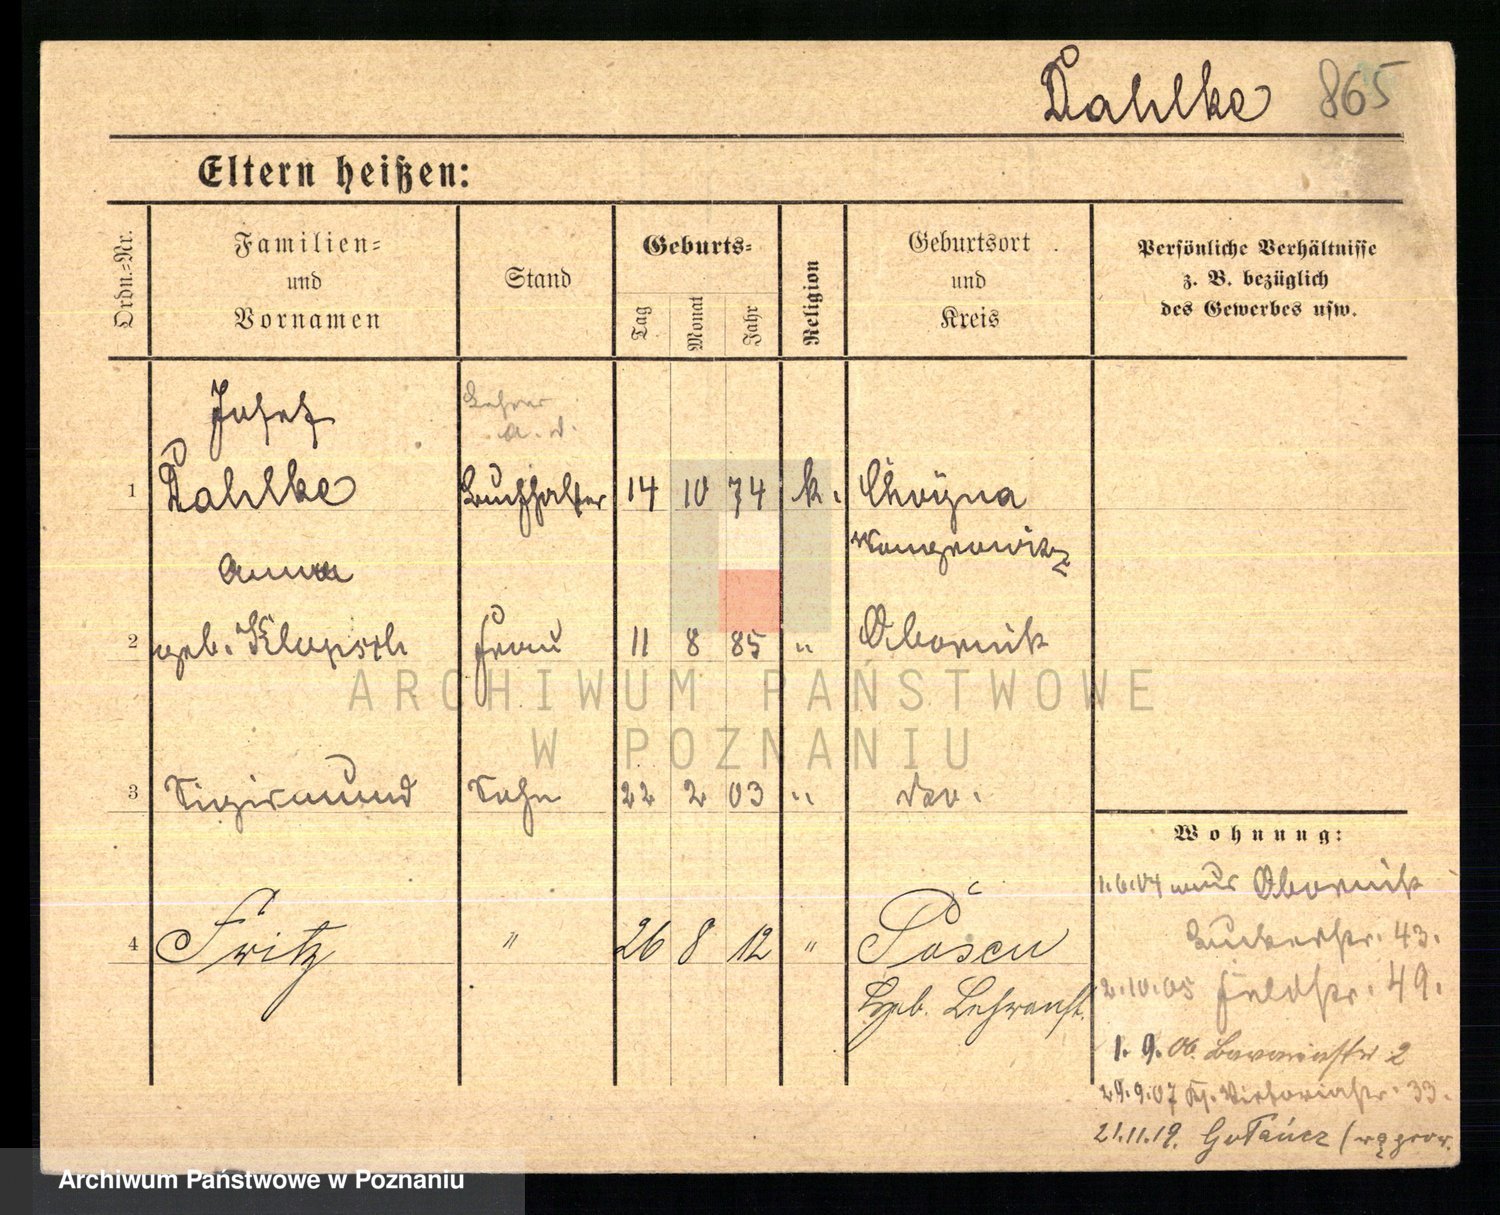 Dahlke 865
Eltern heißen:
Ordn.-Nr.
Familien-
und
Vornamen
Stand
Geburts-
Tag
Monat
Jahr
Religion
Geburtsort
und
Kreis
Persönliche Verhältnisse
z. B. bezüglich
des Gewerbes usw.
Josef
Lehrer
a. D.
1 Dahlke Buchhalter 14 10 74 k.
Wongrowitz
Anna
2 geb. Klopsch Frau 11 8 85 " Obornik
ARCHIWUM PAŃSTWOWE
W POZNANIU
3 Sigismund Sohn 22 2 03 "
Wohnung:
1.6.04 aus Obornik
4 Fritz " 26 8 12 " Posen
Bukerstr. 43.
2.10.05 Feldstr. 49.
Hgeb. Lehranst.
1. 9. 06. 2
29.9.07 Kl. Viktoriastr. 33.
21.11.19. Gołańcz (wągrow.
Archiwum Państwowe w Poznaniu